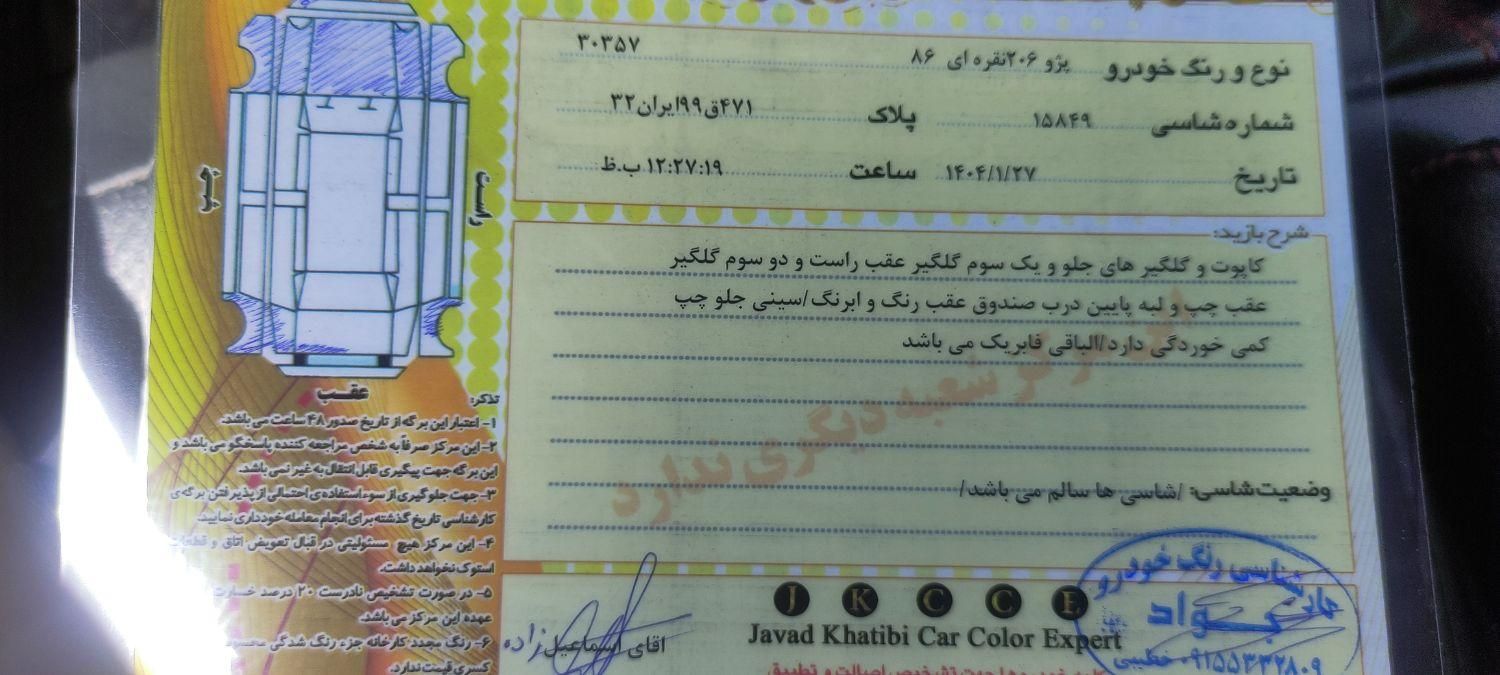 ۳۰۳۵۷
نوع و رنگ خودرو پژو ۲۰۶نقره ای ۸۶
شماره شاسی ۱۵۸۴۹ پلاک ۴۷۱ق۹۹ایران۳۲
تاریخ ۱۴۰۴/۱/۲۷ ساعت ۱۲:۲۷:۱۹ ب.ظ
شرح بازدید:
کاپوت و گلگیر های جلو و یک سوم گلگیر عقب راست و دو سوم گلگیر
عقب چپ و لبه پایین درب صندوق عقب رنگ و ابرنگ/سینی جلو چپ
کمی خوردگی دارد/الباقی فابریک می باشد
شعبه دیگری ندارد
وضعیت شاسی: /شاسی ها سالم می باشد/
راست
چپ
عقب
تذکر:
۱- اعتبار این برگه از تاریخ صدور ۴۸ ساعت می باشد.
۲- این مرکز صرفاً به شخص مراجعه کننده پاسخگو می باشد و
این برگه جهت پیگیری قابل انتقال به غیر نمی باشد.
۳- جهت جلوگیری از سوء استفاده ی احتمالی از پذیرفتن برگه ی
کارشناسی تاریخ گذشته برای انجام معامله خودداری نمایید.
۴- این مرکز هیچ مسئولیتی در قبال تعویض اتاق و قطعات
استوک نخواهد داشت.
۵- در صورت تشخیص نادرست ۲۰ درصد خسارت
عهده این مرکز می باشد.
۶- رنگ مجدد کارخانه جزء رنگ شدگی
کسری قیمت ندارد.
اقای اسماعیل زاده
J K C C E
Javad Khatibi Car Color Expert
کارشناسی رنگ خودرو
جواد
خطیبی ۰۹۱۵۵۳۳۲۸۰۹
جهت تشخیص اصالت و تطبیق